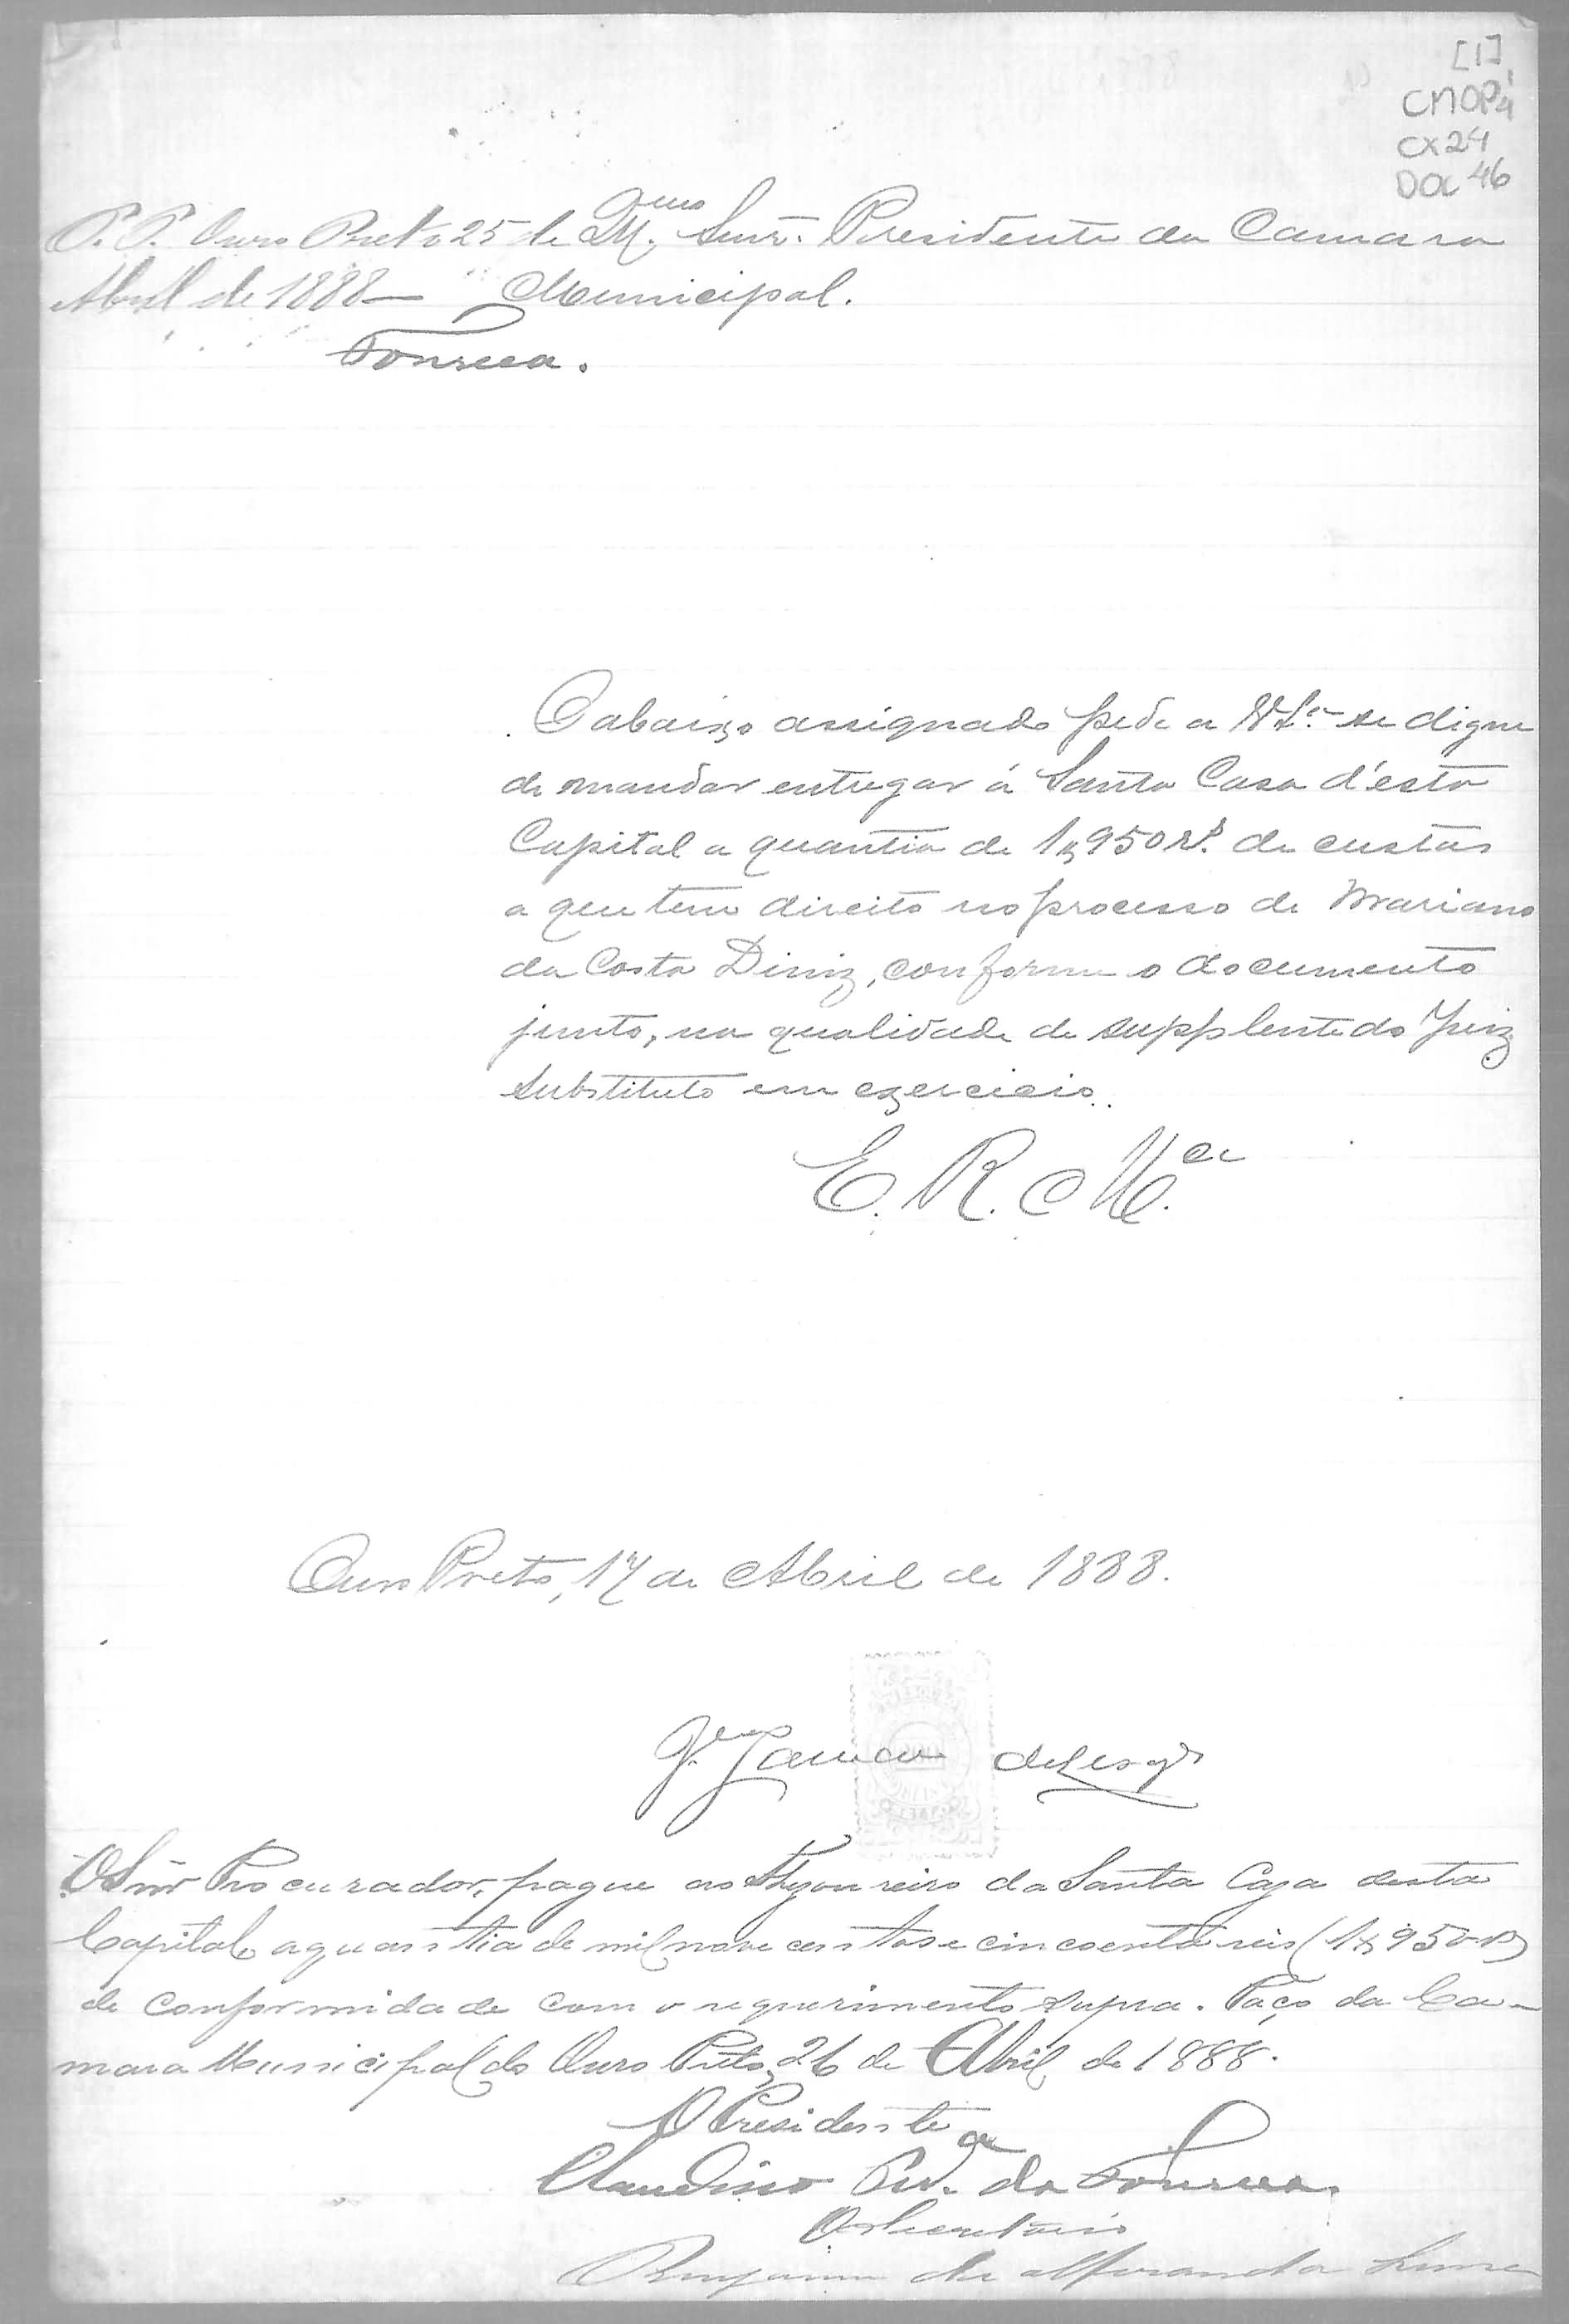 [1]
CMOP
CX 24
DOC 46
P. P. Ouro Preto 25 de
Abril de 1888—
Fonseca.
Illmo Senr. Presidente da Camara
Municipal.
O abaixo assignado pede a V. Sa. se digne
de mandar entregar á Santa Casa d'esta
Capital a quantia de 1$950 rs. de custas
a que tem direito no processo de Mariano
da Costa Diniz, conforme o documento
junto, na qualidade de supplente do Juiz
Substituto em exercicio.
E. R. Mce.
Ouro Preto, 17 de Abril de 1888.
O Snr Procurador, pague ao Thezoureiro da Santa Caza desta
Capital a quantia de mil nove centos e cincoenta reis (1$950rs)
de conformidade com o requerimento supra. Paço da Ca-
mara Municipal do Ouro Preto, 26 de Abril de 1888.
O Presidente
Claudino Pra. da Fonseca.
O Secretario
Benjamin de Miranda Lima